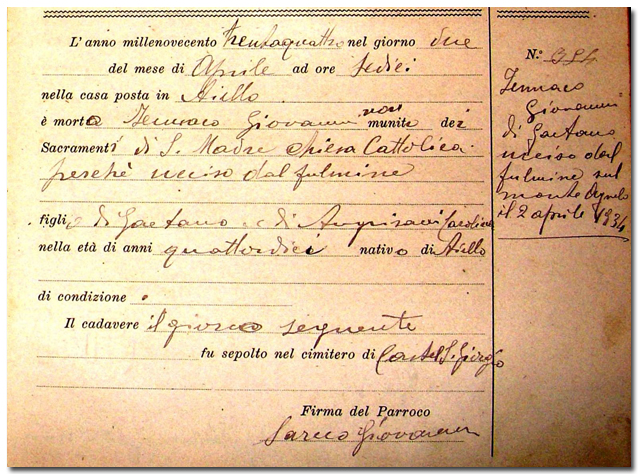 L'anno millenovecento trentaquattro nel giorno due
del mese di Aprile ad ore sedici
nella casa posta in Aiello
è morto Tenneco Giovanni non munito dei
Sacramenti di S. Madre Chiesa Cattolica
perchè ucciso dal fulmine
figlio di Gaetano e di Angrisani Carolina
nella età di anni quattordici nativo di Aiello
di condizione
Il cadavere il giorno seguente
fu sepolto nel cimitero di Castel S. Giorgio
Firma del Parroco
Giovanni
N.°
Giovanni
di Gaetano
ucciso dal
fulmine sul
monte
il 2 aprile 1934